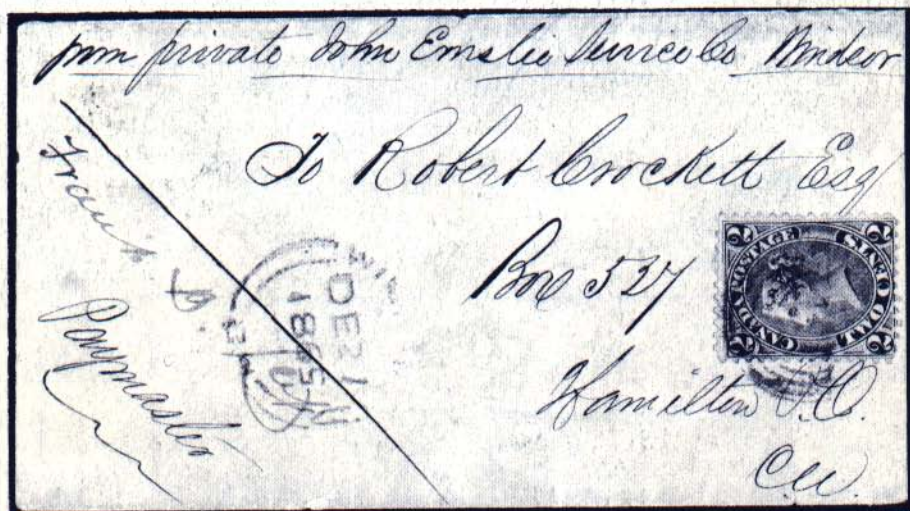 from private John Emslie Service Co Windsor
To Robert Crockett Esq
Box 527
Hamilton P.O.
CW.
Paymaster
DE 21
1865
CANADA POSTAGE
TWO CENTS
2 2 2 2